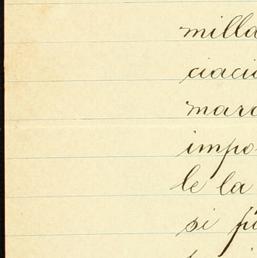 milla
ciació
mara
impo
le la
si pu